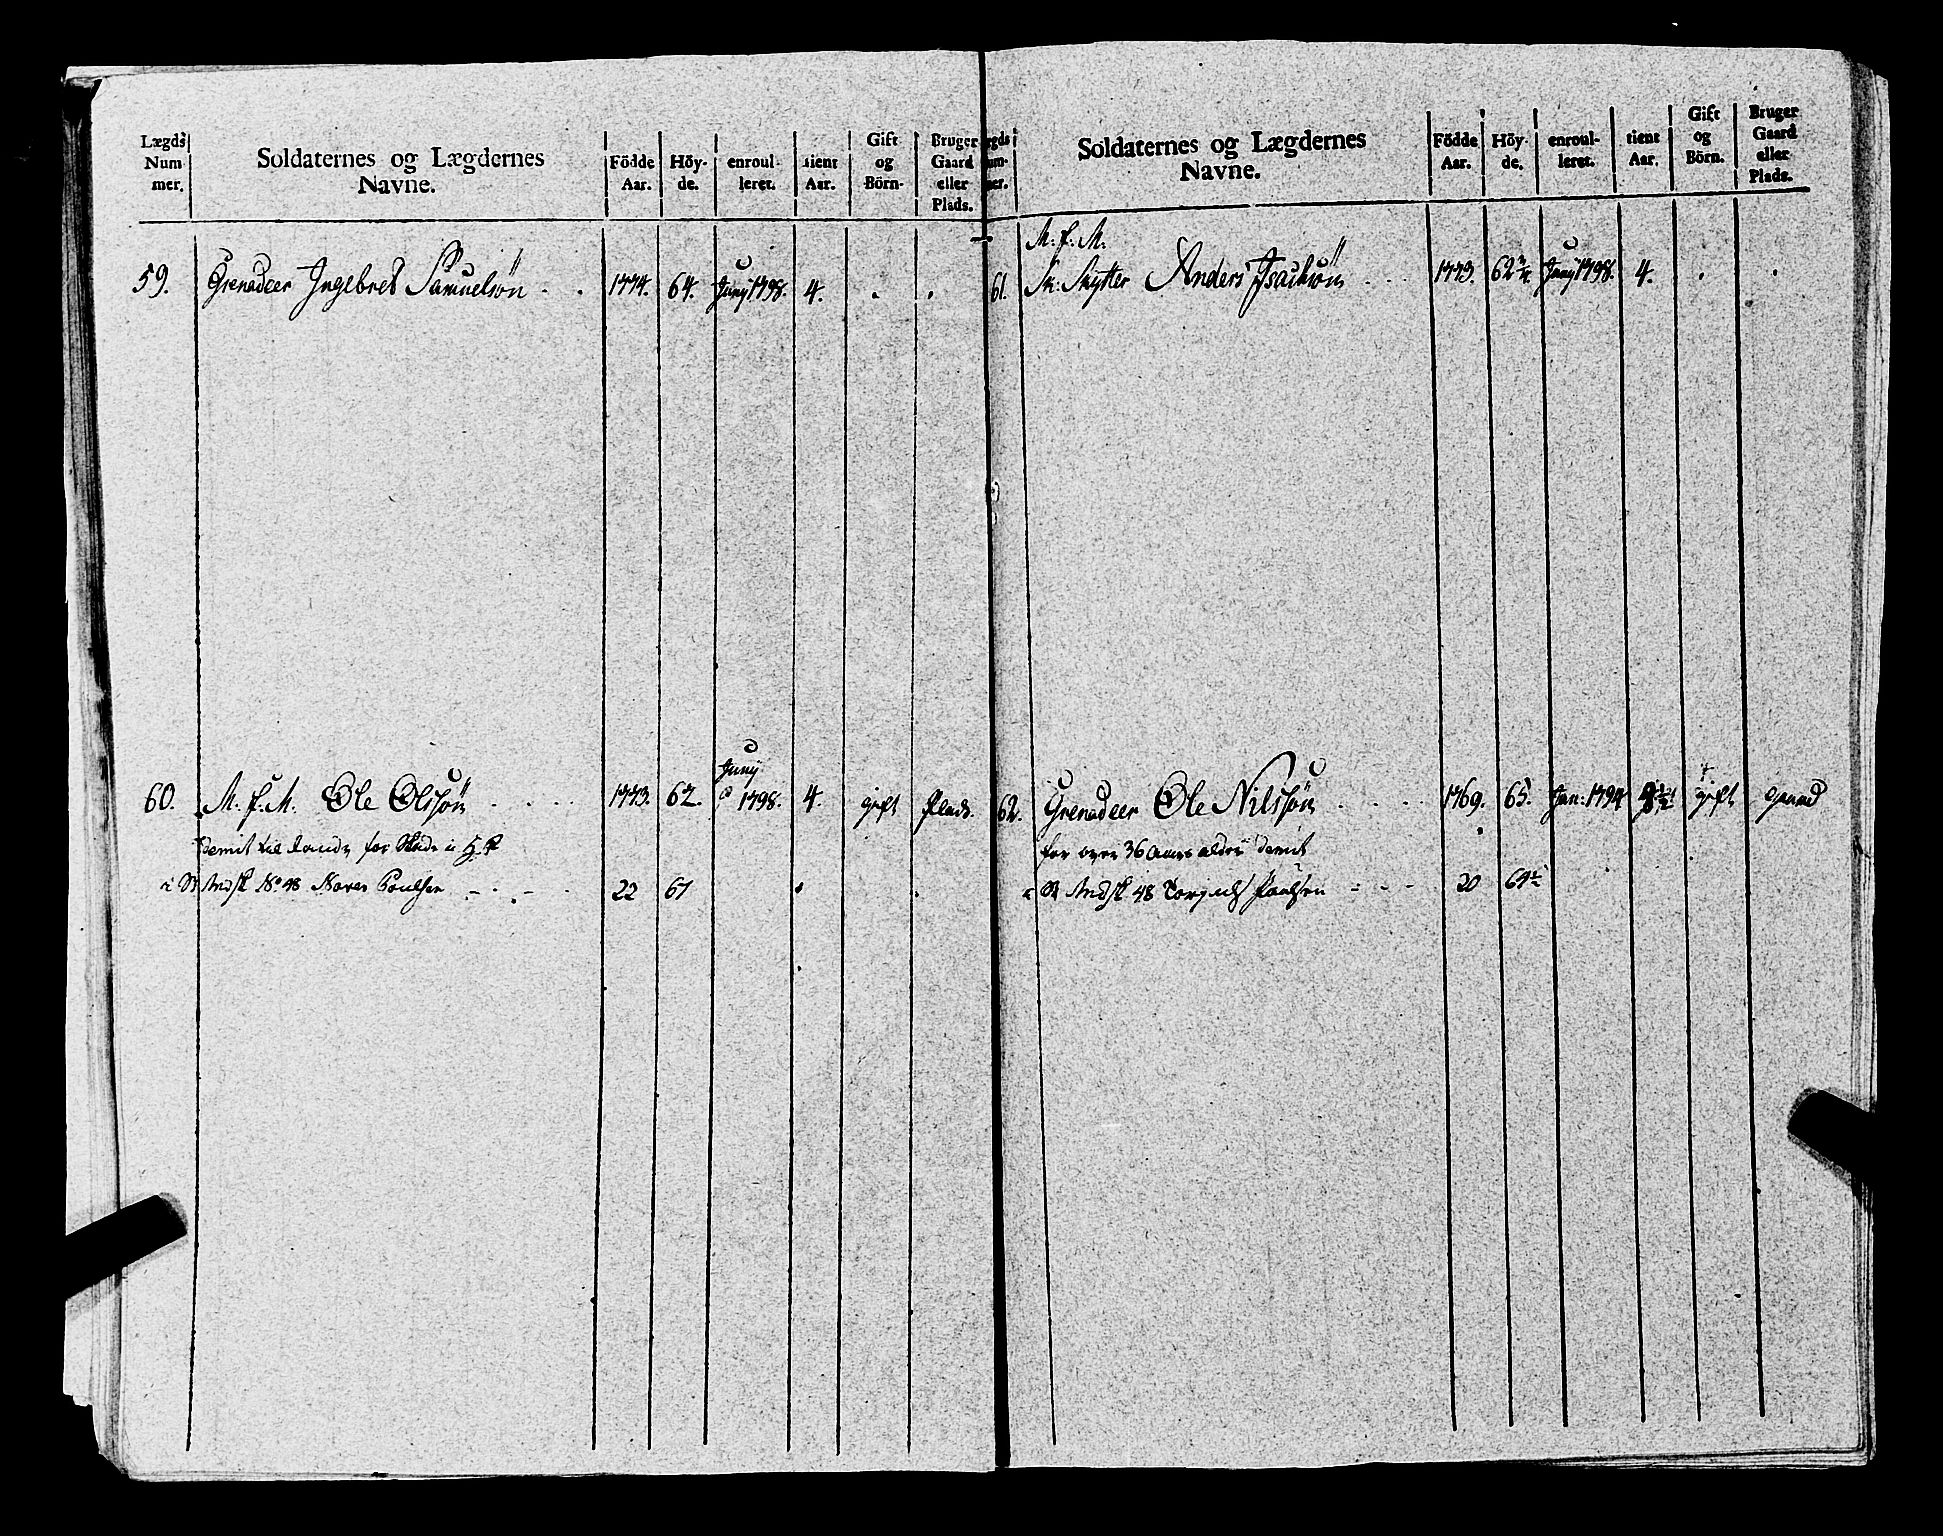 Lægds Num mer. Soldaternes og Lægdernes Navne. Födde Aar. Höy- de. enroul- leret. tient Aar. Gift og Börn. Bruger Gaard eller Plads.
59. Grenadeer Ingebret Samuelsøn . . 1774. 64. Junÿ 1798. 4. . .
60. M. f. M. Ole Olssøn . . . . 1773. 62. Junÿ 1798. 4. gift Plads.
demit til for
No 48 Poulsen 22 67
Soldaternes og Lægdernes Navne. Födde Aar. Höy- de. enroul- leret. tient Aar. Gift og Börn. Bruger Gaard eller Plads.
M. f. M.
61. Sk: Skytter Anders Isachsøn . . . 1773. Junÿ 1798. 4. . .
62. Grenadeer Ole Nilssøn . . . . 1769. 65. Jan: 1794 gift gaard
for over 36 aars alder demit
48 Poulsen 20 64½